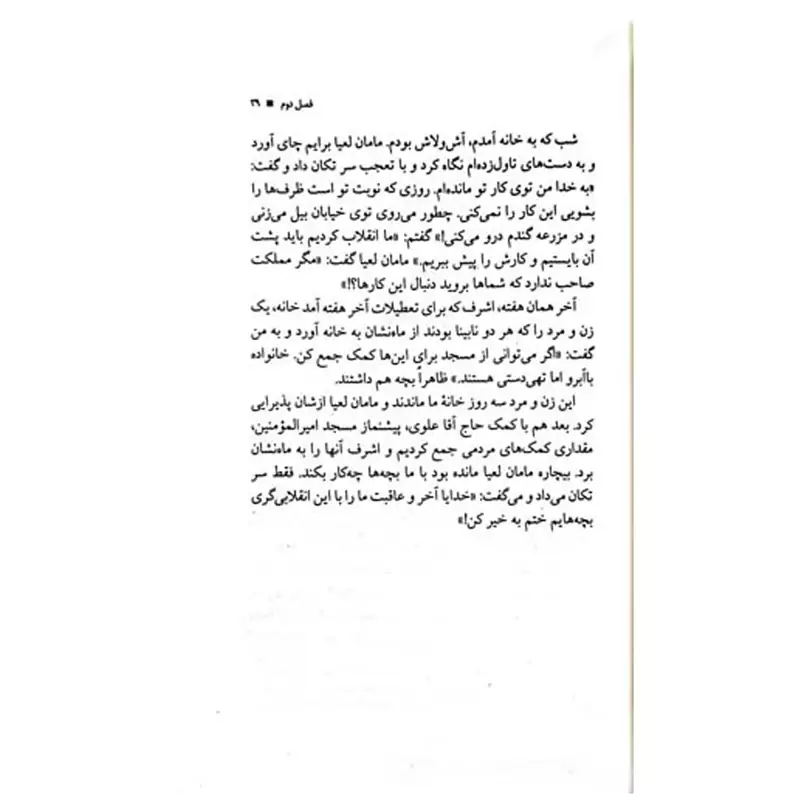 فصل دوم ■ ۲۹
شب که به خانه آمدم، آش‌ولاش بودم. مامان لعیا برایم چای آورد
و به دست‌های تاول‌زده‌ام نگاه کرد و با تعجب سر تکان داد و گفت:
«به خدا من توی کار تو مانده‌ام. روزی که نوبت تو است ظرف‌ها را
بشویی این کار را نمی‌کنی. چطور می‌روی توی خیابان بیل می‌زنی
و در مزرعه گندم درو می‌کنی!» گفتم: «ما انقلاب کردیم باید پشت
آن بایستیم و کارش را پیش ببریم.» مامان لعیا گفت: «مگر مملکت
صاحب ندارد که شماها بروید دنبال این کارها؟!»
آخر همان هفته، اشرف که برای تعطیلات آخر هفته آمد خانه، یک
زن و مرد را که هر دو نابینا بودند از ماه‌نشان به خانه آورد و به من
گفت: «اگر می‌توانی از مسجد برای این‌ها کمک جمع کن. خانواده
باآبرو اما تهی‌دستی هستند.» ظاهراً بچه هم داشتند.
این زن و مرد سه روز خانهٔ ما ماندند و مامان لعیا ازشان پذیرایی
کرد. بعد هم با کمک حاج آقا علوی، پیشنماز مسجد امیرالمؤمنین،
مقداری کمک‌های مردمی جمع کردیم و اشرف آنها را به ماه‌نشان
برد. بیچاره مامان لعیا مانده بود با ما بچه‌ها چه‌کار بکند. فقط سر
تکان می‌داد و می‌گفت: «خدایا آخر و عاقبت ما را با این انقلابی‌گری
بچه‌هایم ختم به خیر کن!»